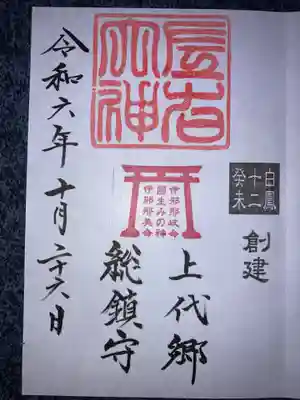 白鳳
十二
癸未
創建
左右
大神
伊邪那岐命
國生みの神
伊邪那美命
上代郷
総鎮守
令和六年 十月二十六日